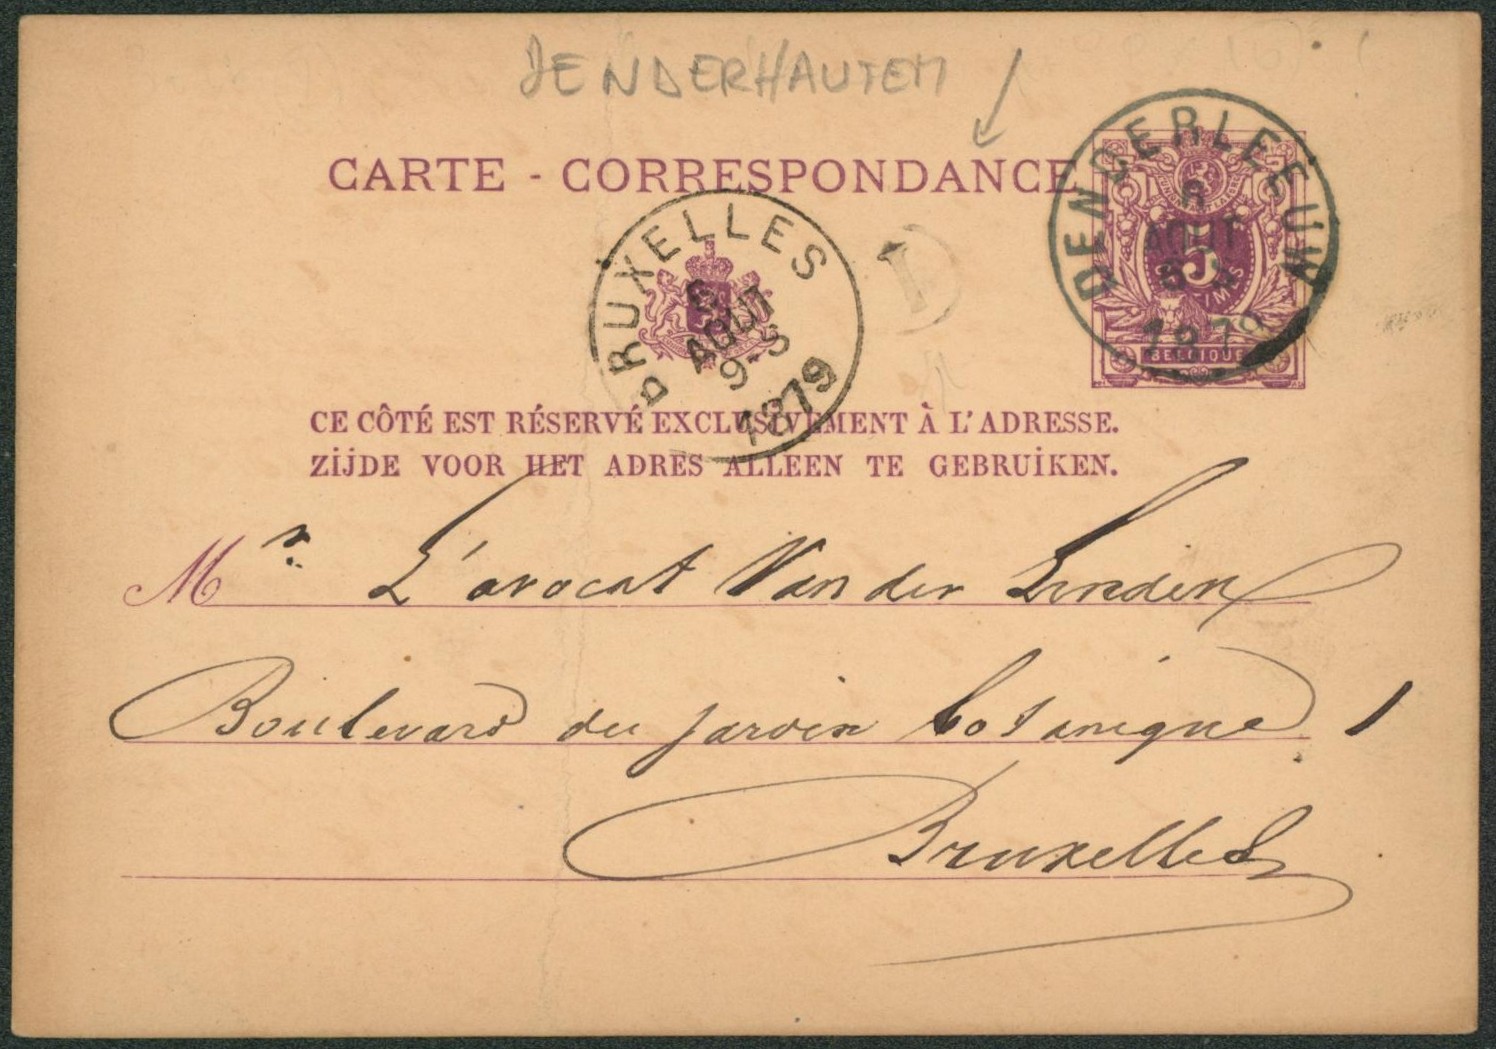 DENDERHAUTEM
CARTE - CORRESPONDANCE
DENDERLEEUW
AOUT
1879
5
BELGIQUE
BRUXELLES
AOUT
9-S
1879
I
CE CÔTÉ EST RÉSERVÉ EXCLUSIVEMENT À L'ADRESSE.
ZIJDE VOOR HET ADRES ALLEEN TE GEBRUIKEN.
Mr. L'avocat Van der Linden
Boulevard du jardin botanique 1
Bruxelles